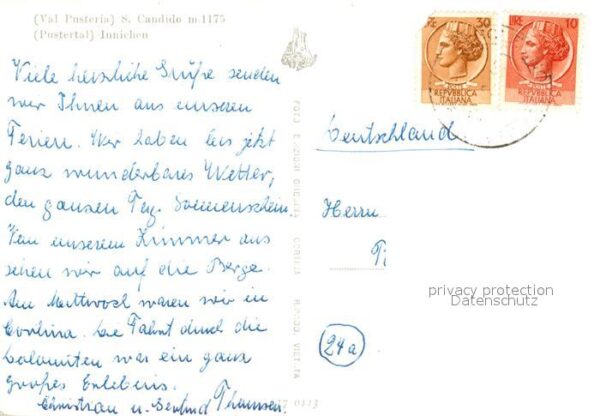 (Val Pusteria) S. Candido m.1175
(Pustertal) Innichen
Viele herzliche Grüße senden
wir Ihnen aus unseren
Ferien. Wir haben bis jetzt
ganz wunderbares Wetter,
den ganzen Tag Sonnenschein.
Von unserem Zimmer aus
sehen wir auf die Berge.
Am Mittwoch waren wir in
Cortina. Die Fahrt durch die
Dolomiten war ein ganz
großes Erlebnis.
Christian u. Gertrud Thomsen.
FOTO EDIZIONI
RIPROD. VIETATA
30
REPVBBLICA
ITALIANA
LIRE 10
REPVBBLICA
ITALIANA
Deutschland
Herrn
24a
privacy protection
Datenschutz